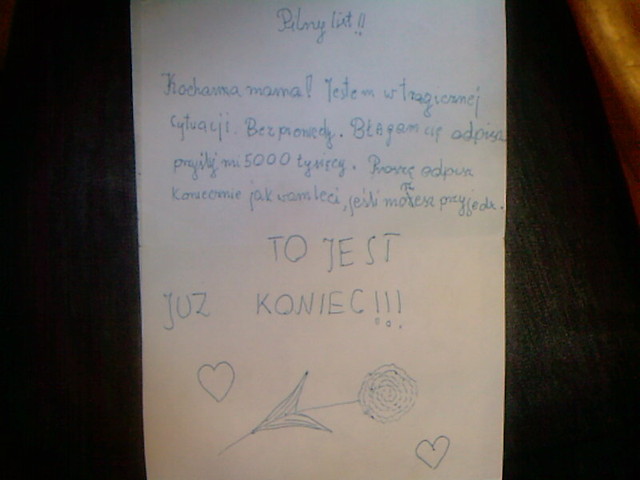 Pilny list!!
Kochana mama! Jestem w tragicznej
sytuacji. Bez pieniędzy. Błagam cię odpisz
pryślij mi 5000 tysięcy. Proszę odpisz
koniecznie jak wam leci, jeśli możesz przyjedz.
TO JEST
JUZ KONIEC!!!